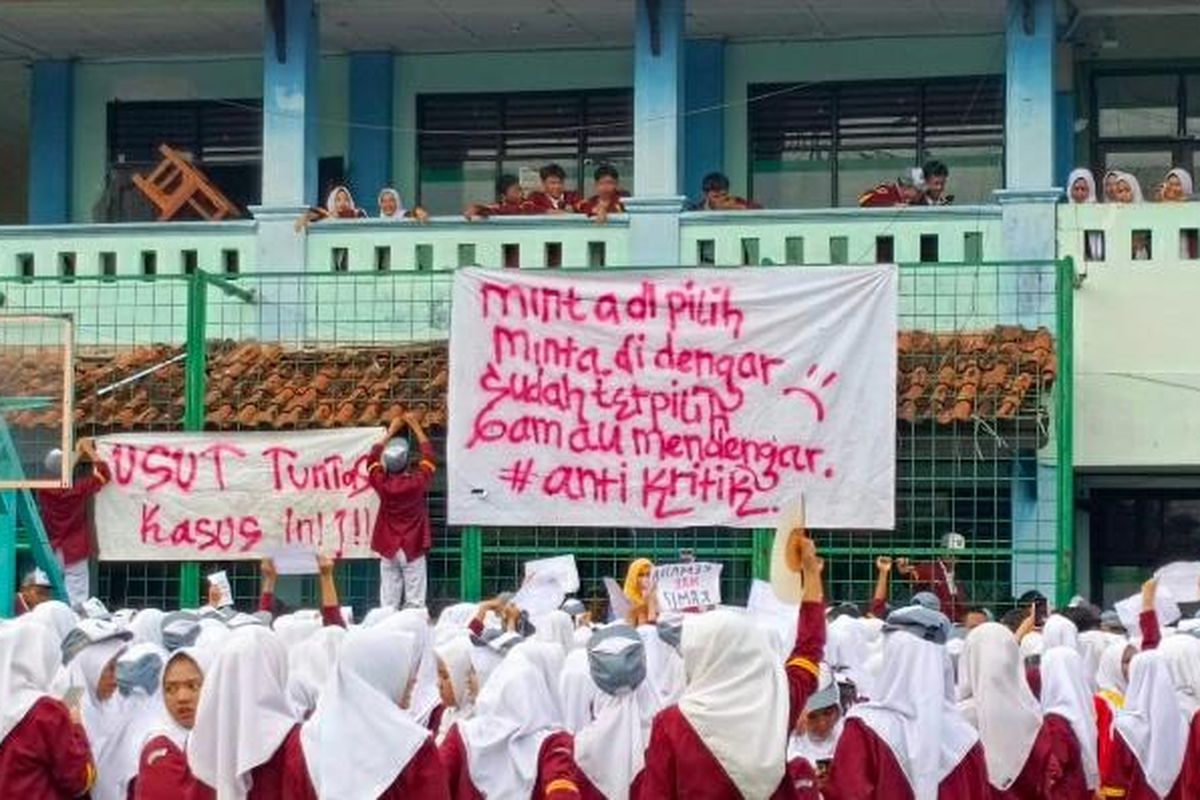 USUT TUNTAS
KASUS INI !!!
minta di pilih
minta di dengar
Sudah terpilih
Gamau mendengar.
#anti kritik.
KEMANA
HAK
KAMI?